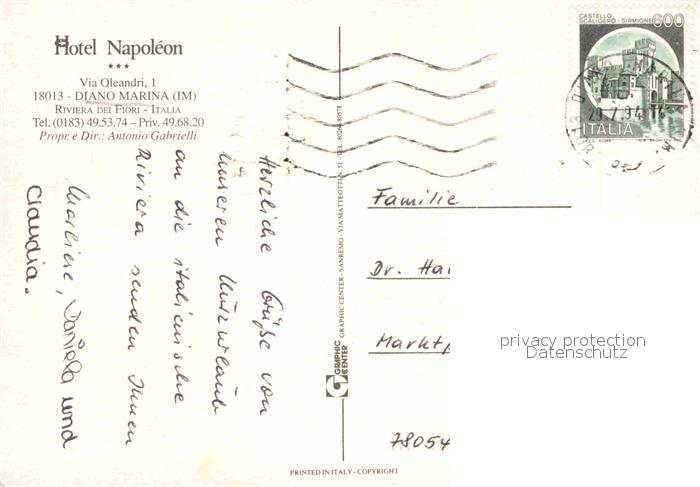 Hotel Napoléon
★★★
Via Oleandri, 1
18013 - DIANO MARINA (IM)
RIVIERA DEI FIORI - ITALIA
Tel. (0183) 49.53.74 – Priv. 49.68.20
Propr. e Dir.: Antonio Gabrielli
Herzliche Grüße von
unseren Kurzurlaub
an die italienische
Riviera senden Ihnen
Daniela und
Claudia.
GRAPHIC CENTER
GRAPHIC CENTER - SANREMO - VIA MATTEOTTI N. 51 - TEL.
CASTELLO
SCALIGERO - SIRMIONE
600
ITALIA
Familie
Dr. Hau
Marktp
78054
privacy protection
Datenschutz
PRINTED IN ITALY - COPYRIGHT